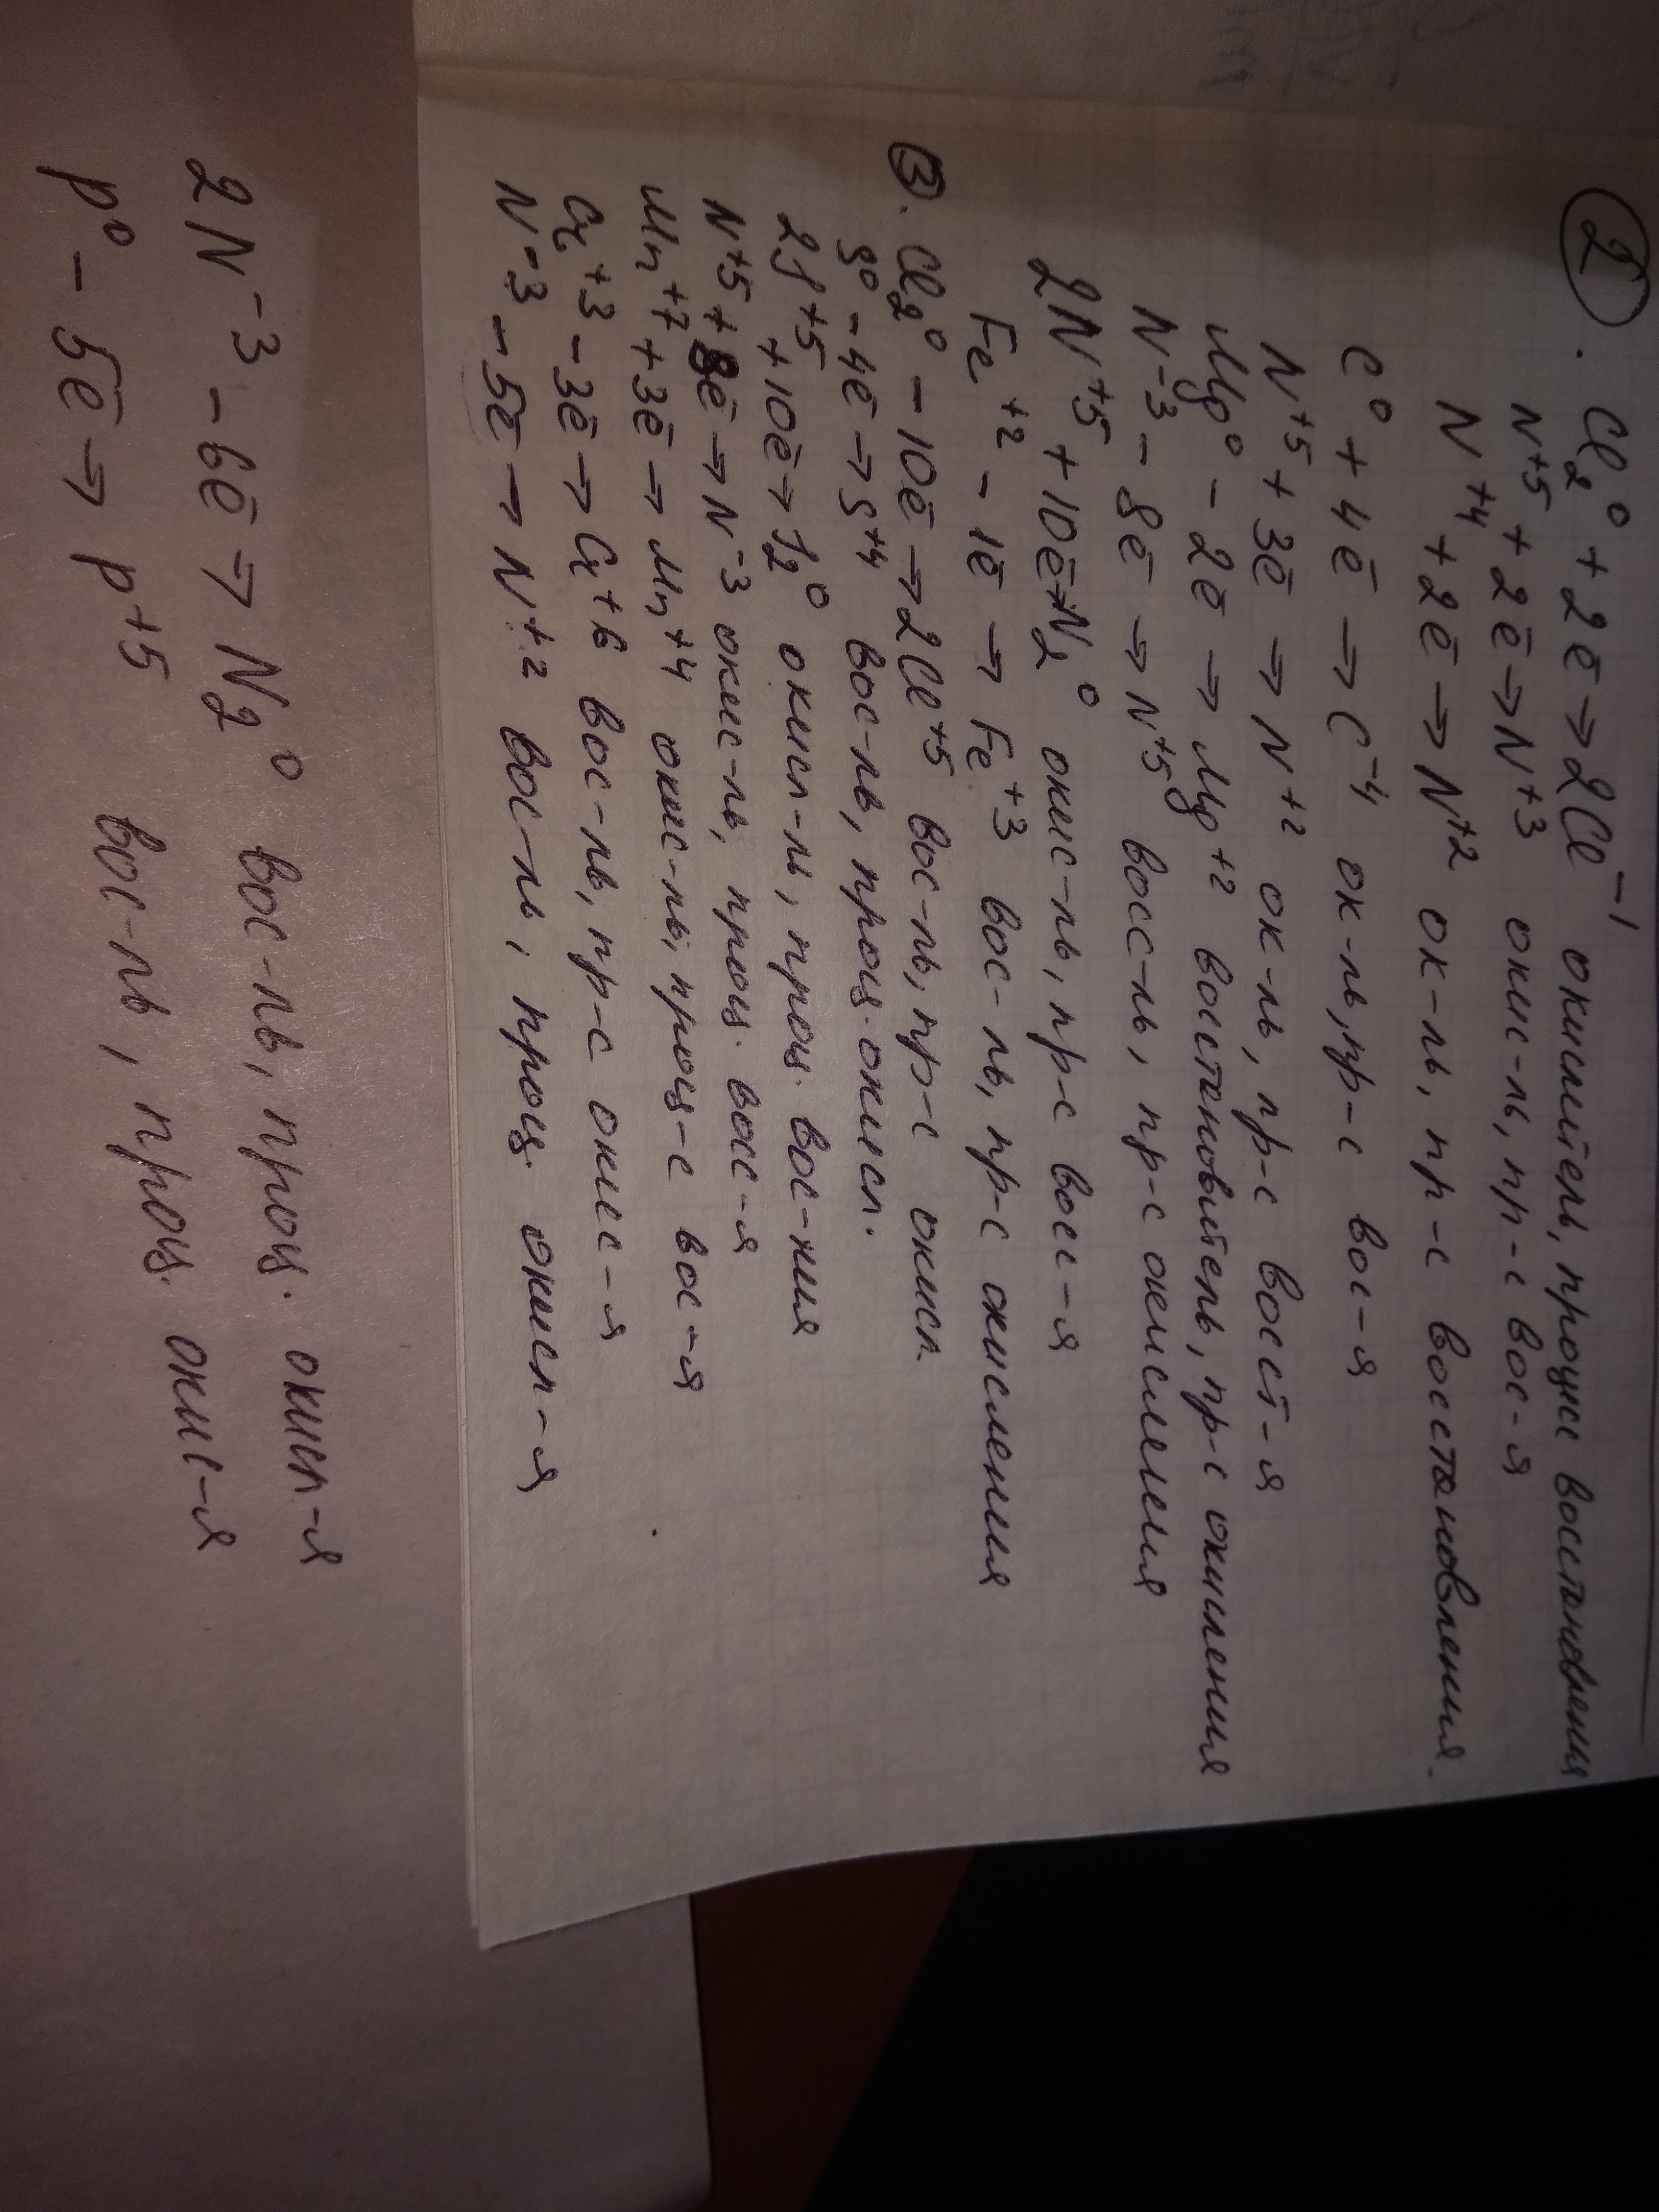 2. Cl₂⁰ + 2ē → 2Cl⁻¹ окислитель, процесс восстановления
N⁺⁵ + 2ē → N⁺³ окис-ль, пр-с вос-я
N⁺⁴ + 2ē → N⁺² ок-ль, пр-с восстановления.
C⁰ + 4ē → C⁻⁴ ок-ль, пр-с вос-я
N⁺⁵ + 3ē → N⁺² ок-ль, пр-с вост-я
Mg⁰ - 2ē → Mg⁺² востановитель, пр-с окисления
N⁻³ - 8ē → N⁺⁵ восс-ль, пр-с окисления
2N⁺⁵ + 10ē → N₂⁰ окис-ль, пр-с восс-я
Fe⁺² - 1ē → Fe⁺³ вос-ль, пр-с окисления
3. Cl₂⁰ - 10ē → 2Cl⁺⁵ вос-ль, пр-с окисл.
S⁰ - 4ē → S⁺⁴ вос-ль, проц. окисл.
2J⁺⁵ + 10ē → J₂⁰ окисл-ль, проц. вос-ния
N⁺⁵ + 8ē → N⁻³ окис-ль, проц. восс-я
Mn⁺⁷ + 3ē → Mn⁺⁴ окис-ль, проц-с вос-я
Cr⁺³ - 3ē → Cr⁺⁶ вос-ль, пр-с окис-я
N⁻³ - 5ē → N⁺² вос-ль, проц. окисл-я
2N⁻³ - 6ē → N₂⁰ вос-ль, проц. окисл-я
P⁰ - 5ē → P⁺⁵ вос-ль, проц. окис-я